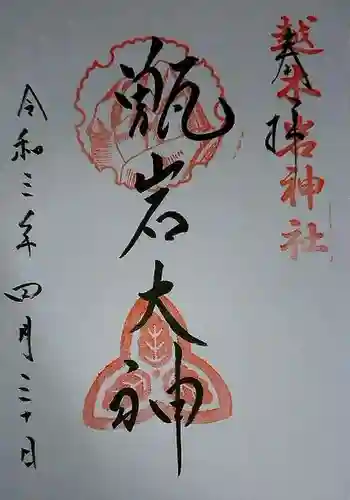 越木岩神社
奉拝
甑岩大神
令和三年四月三十日